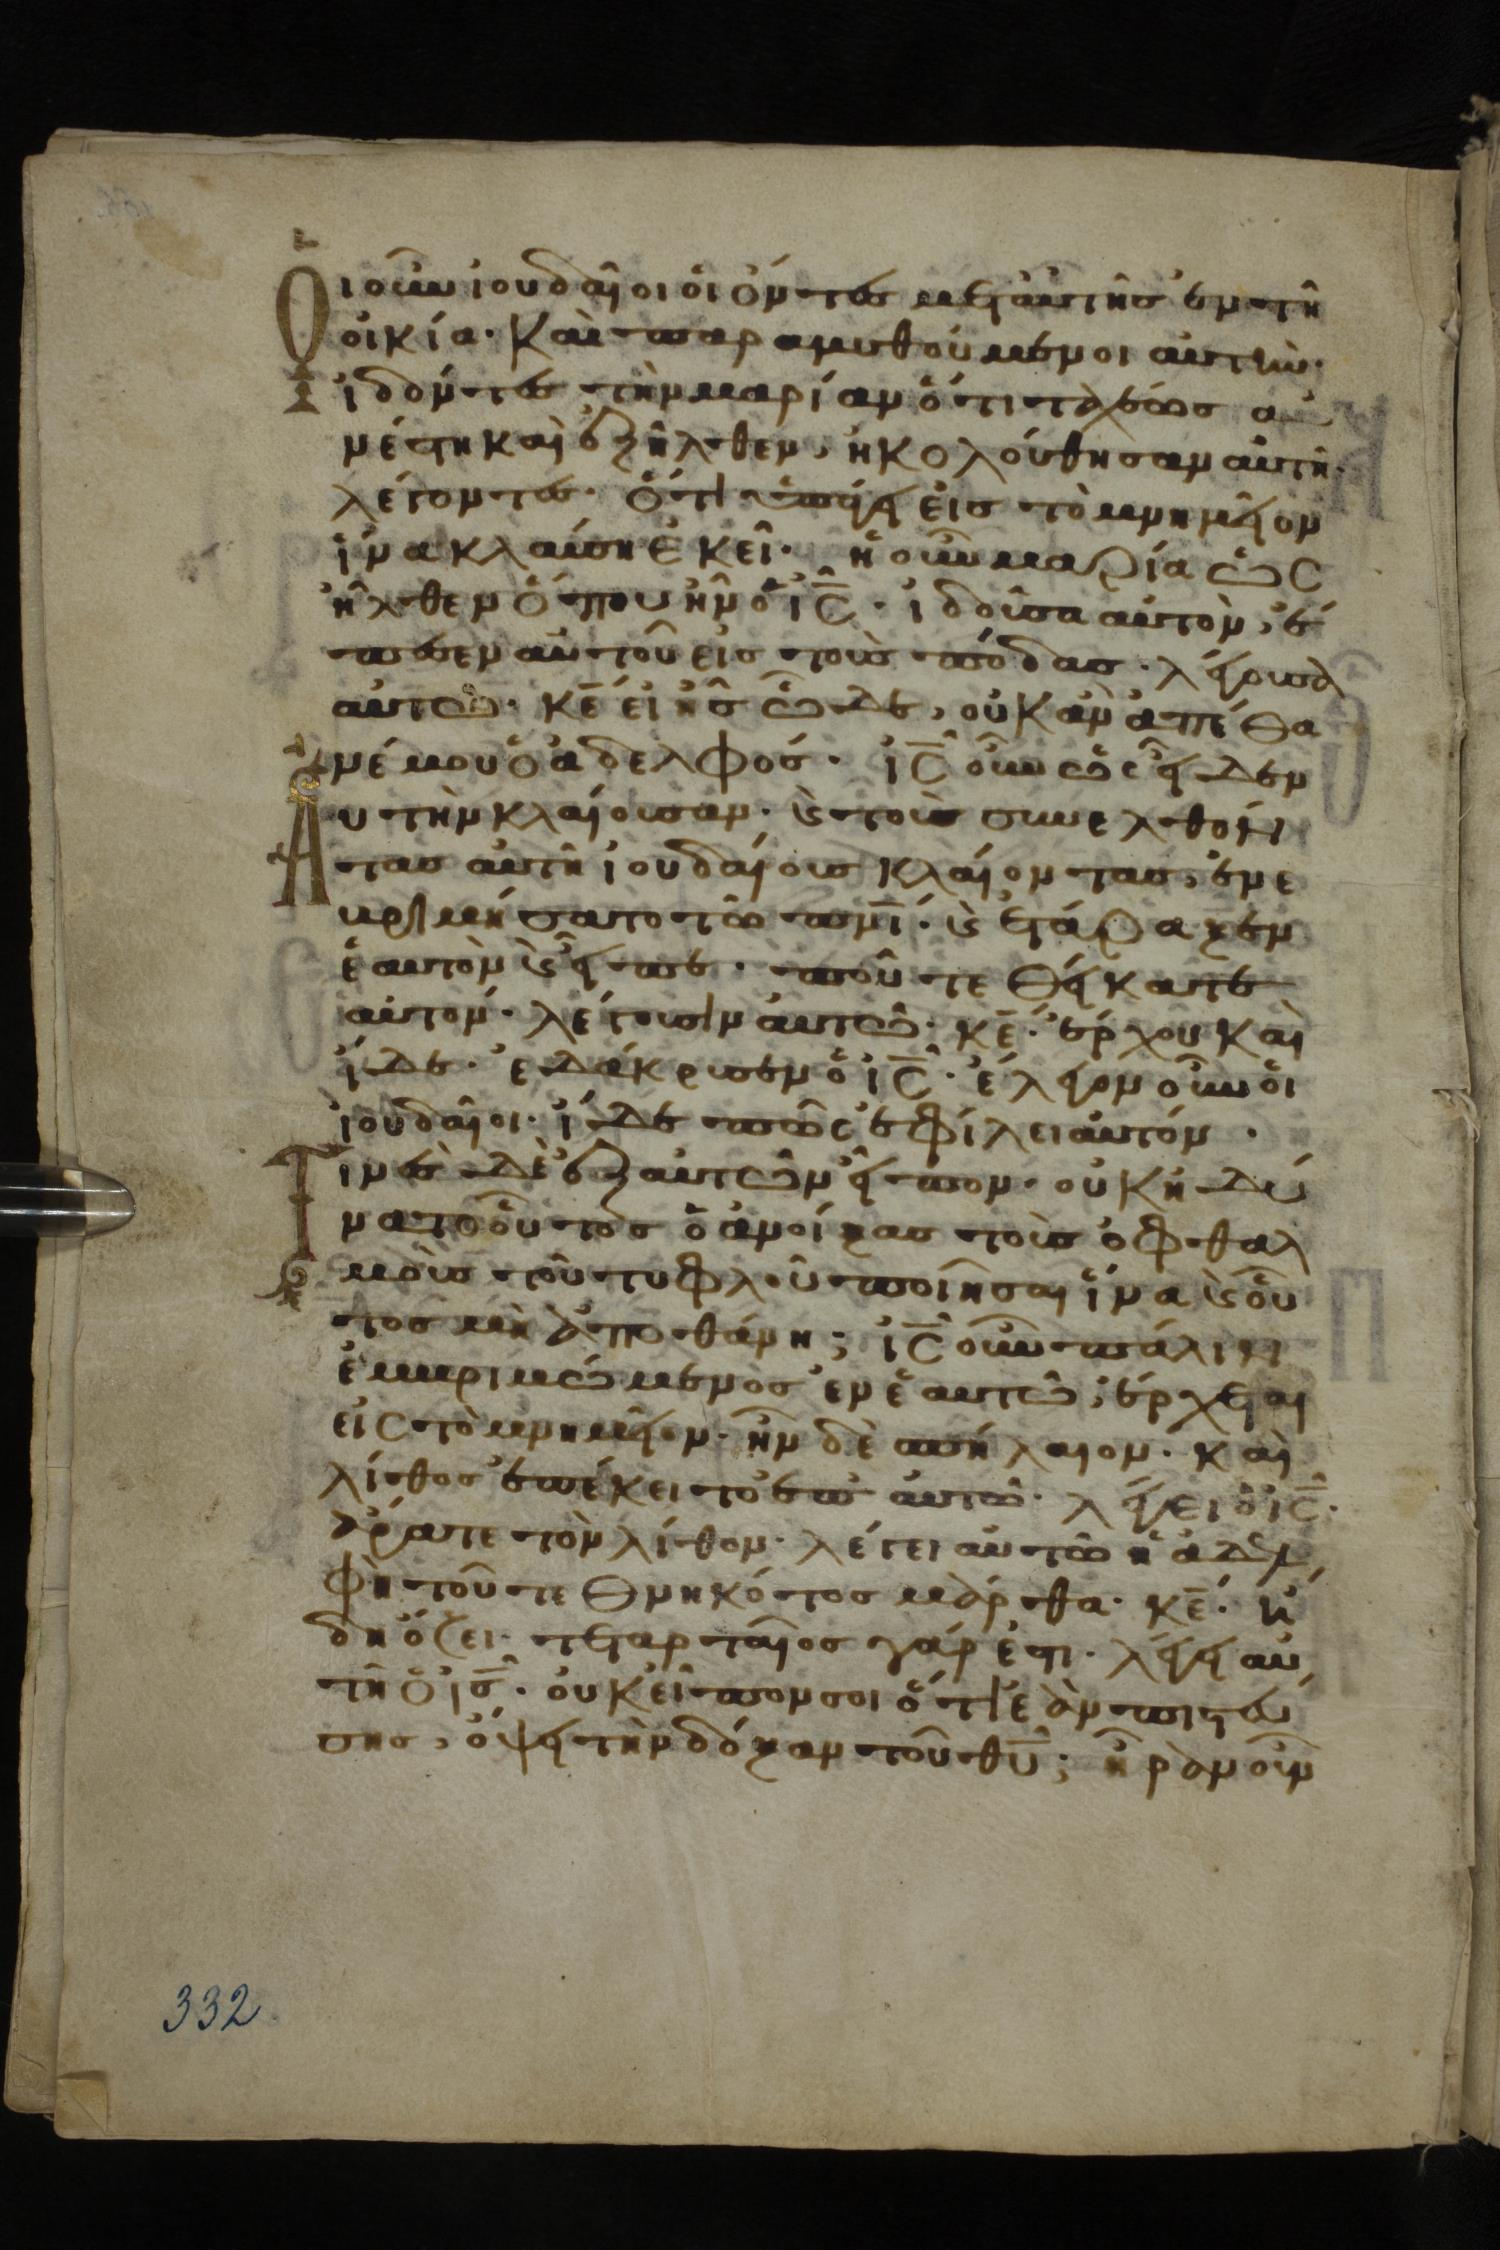 Οι οὖν ἰουδαῖοι οἱ ὄντες μετ αὐτῆς ἐν τῆ
οἰκία· Καὶ παραμυθούμενοι αὐτὴν·
ἰδόντες τὴν μαρίαν ὅτι ταχέως α
νέστη καὶ ἐξῆλθεν, ἠκολούθησαν αὐτῆ·
λέγοντες· ὅτι ὑπάγει εἰς τὸ μνημεῖον
ἵνα κλαύση ἐκεῖ· ἡ οὖν μαρία ὡς
ἦλθεν ὅπου ἦν ὁ ις· ἰδοῦσα αὐτὸν, ἔ
πεσεν αὐτοῦ εἰς τοὺς πόδας· λέγουσα
αὐτῶ· κε εἰ ἦς ὧδε, οὐκ ἂν ἀπέθα
νέ μου ὁ ἀδελφός· ις οὖν ὡς εἶδεν
Αυτὴν κλαίουσαν· καὶ τοὺς συνελθόν
τας αὐτῆ ἰουδαίους κλαίοντας, ἐνε
βριμήσατο τῶ πνι· καὶ ἐτάραξεν
ἑαυτὸν καὶ εἶπε· ποῦ τεθείκατε
αὐτόν· λέγουσιν αὐτῶ· κε· ἔρχου καὶ
ἴδε· ἐδάκρυσεν ὁ ις· ἔλεγον οὖν οἱ
ἰουδαῖοι· ἴδε πῶς ἐφίλει αὐτόν·
Τινὲς δὲ ἐξ αὐτῶν εἶπον· οὐκ ἠδύ
νατο οὗτος ὁ ἀνοίξας τοὺς ὀφθαλ
μοὺς τοῦ τυφλοῦ ποιῆσαι ἵνα καὶ οὗ
τος μὴ ἀποθάνη; ις οὖν πάλιν
ἐμβριμώμενος ἐν ἑαυτῶ, ἔρχεται
εἰς τὸ μνημεῖον· ἦν δὲ σπήλαιον· καὶ
λίθος ἐπέκειτο ἐπ αὐτῶ· λέγει ὁ ις·
ἄρατε τὸν λίθον· λέγει αὐτῶ ἡ ἀδελ
φὴ τοῦ τεθνηκότος μάρθα· κε· ἤ
δη ὄζει· τεταρταῖος γάρ ἐστι· λέγει αὐ
τῆ ὁ ις· οὐκ εἶπον σοι ὅτι ἐὰν πιστεύ
σης, ὄψει τὴν δόξαν τοῦ θυ; ἦραν οὖν
332